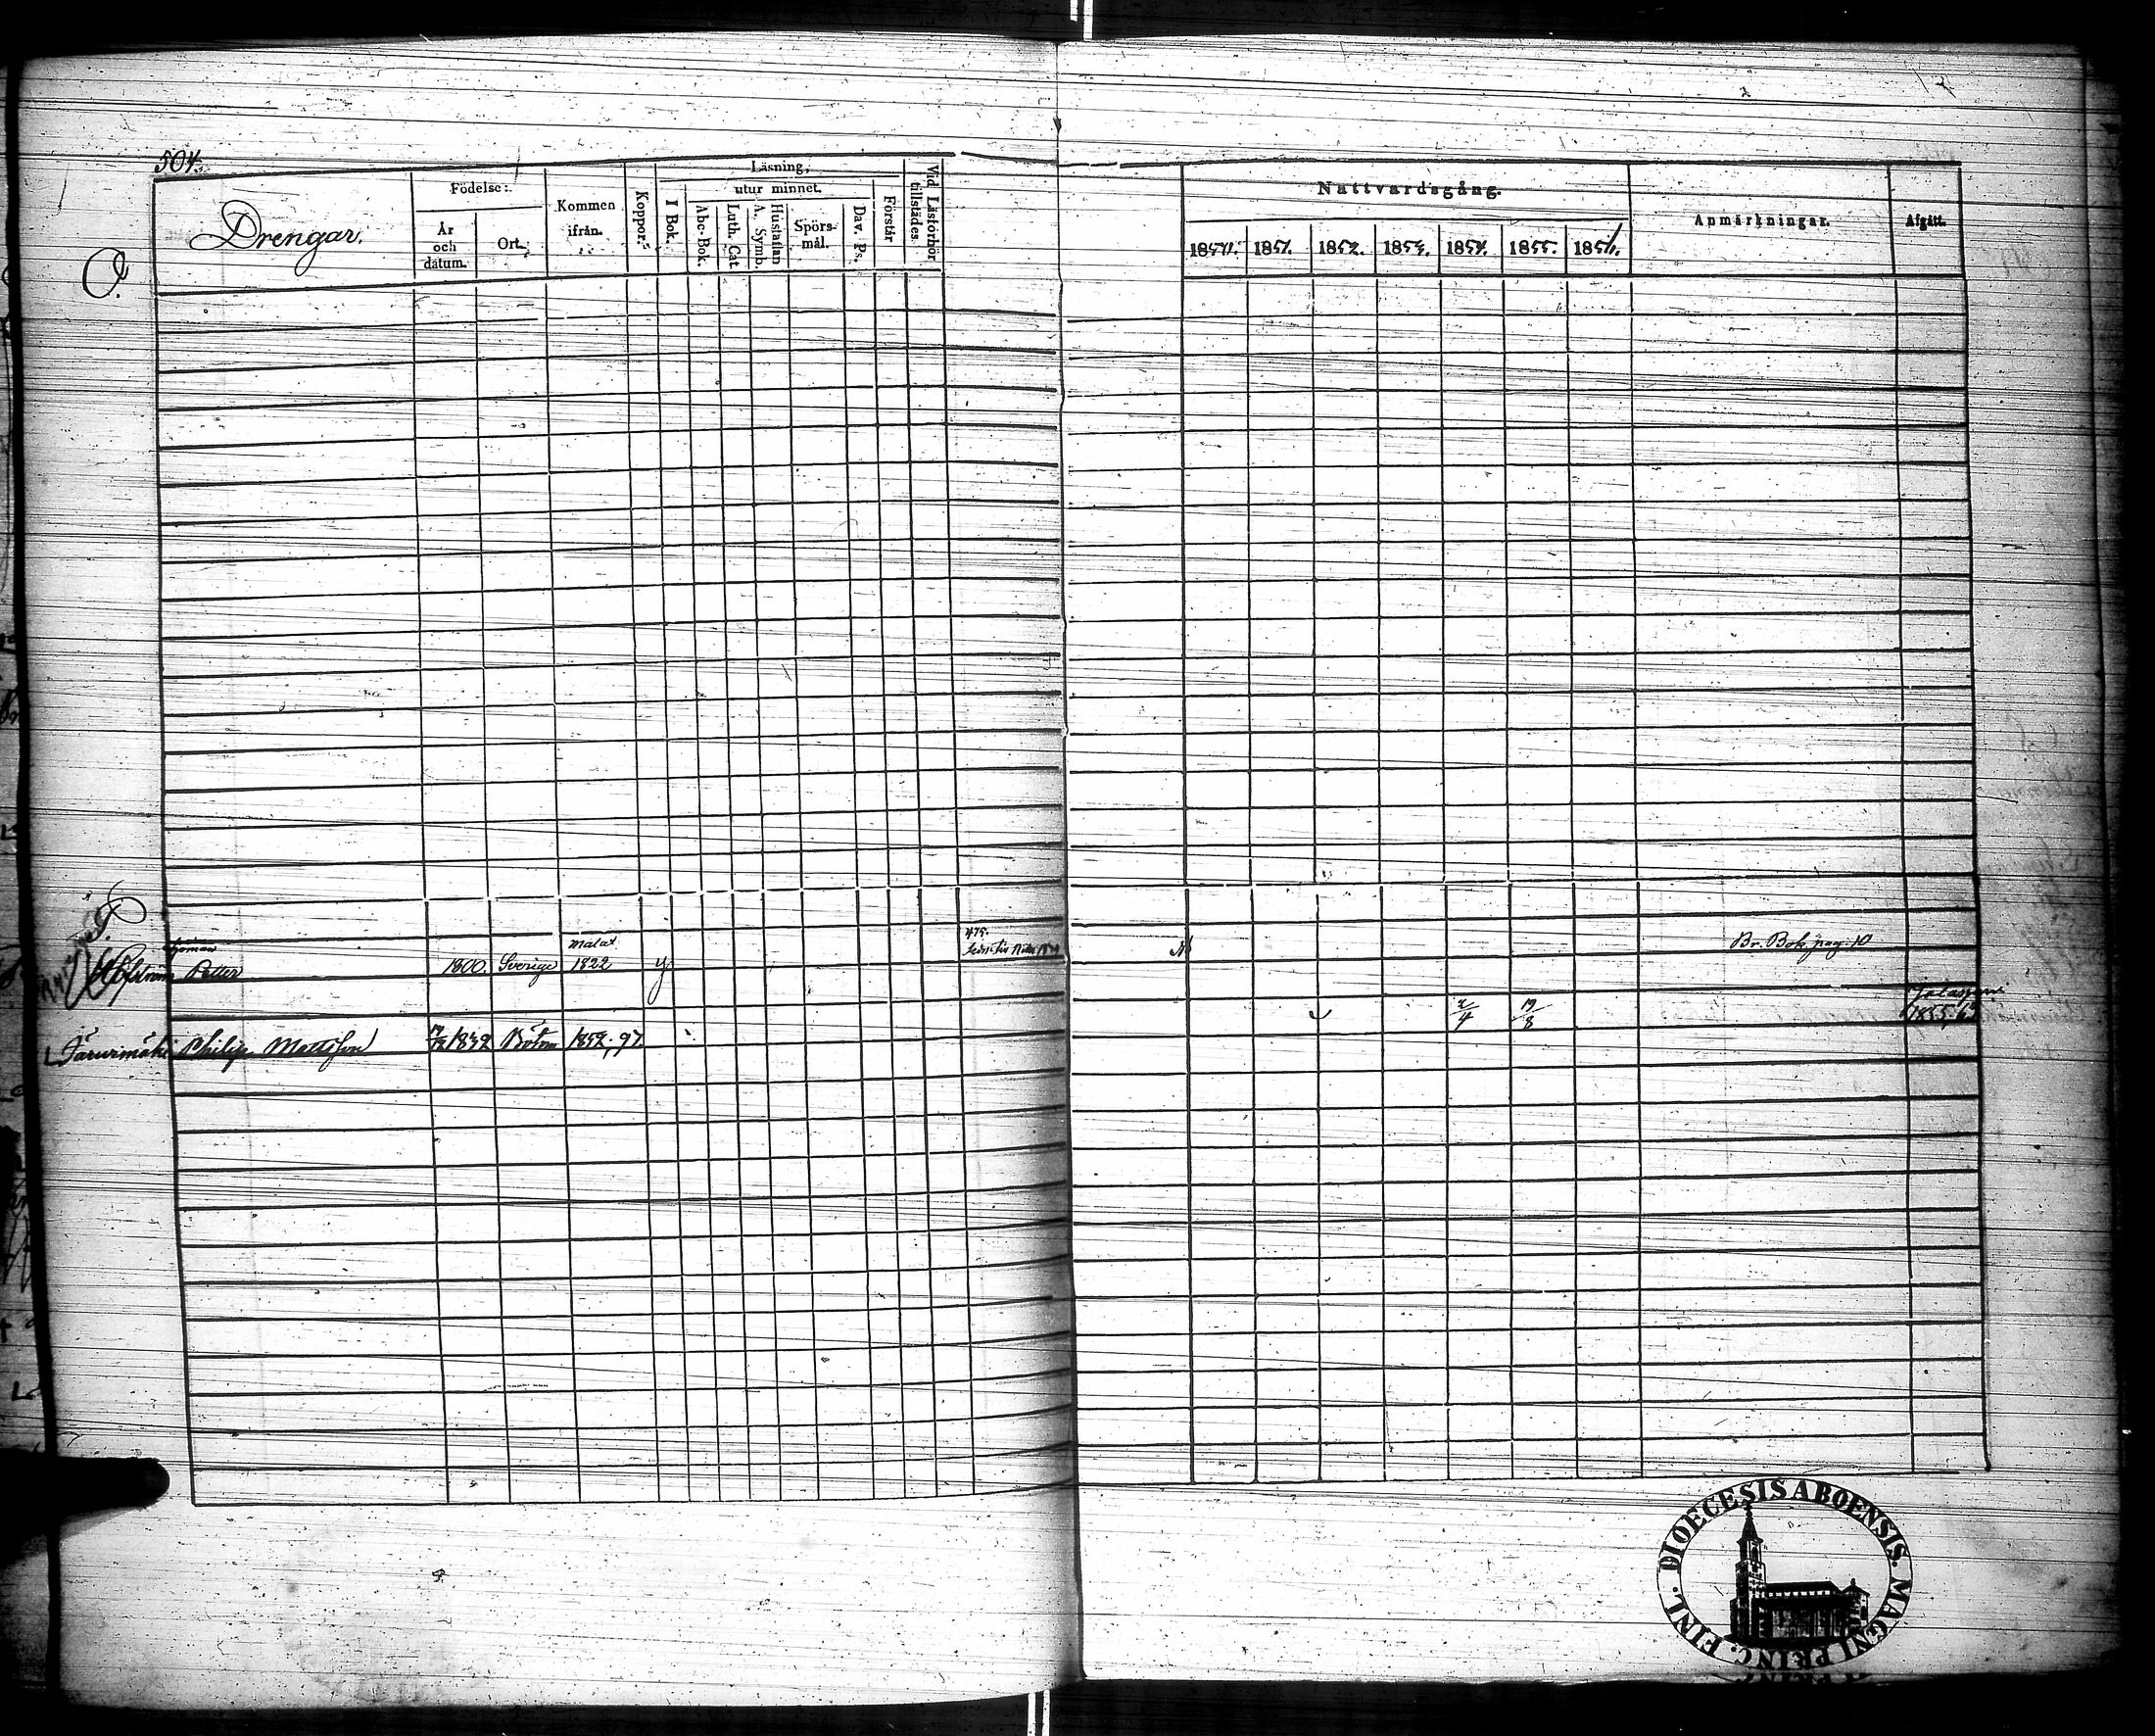 504.
Drengar.
Födelse:
År och datum.
Ort.
Kommen ifrån.
Koppor.
Läsning,
I Bok.
utur minnet.
Abc-Bok.
Luth. Cat.
Hustaflan A. Symb.
Spörsmål.
Dav. Ps.
Förstår
Vid Läsförhör tillstädes.
Nattvardsgång.
1850. 1851. 1852. 1853. 1854. 1855. 1856.
Anmärkningar.
Afgått.
O.
P.
Petter 1800. Sverige Malax 1822 y
Br. Bok pag. 10
Philip Mattsson 1832 1852, 97.
2/4 19/8
1855, 63
DIOECESIS ABOENSIS. MAGNI PRINC. FINL.